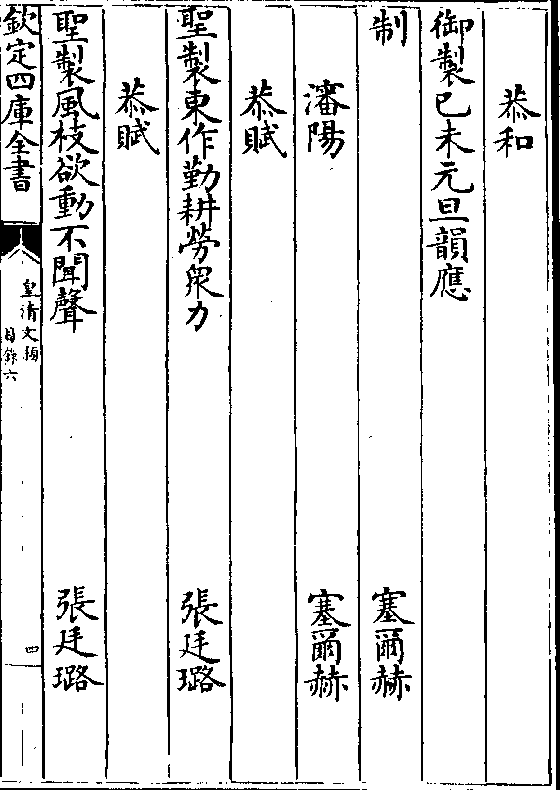 恭和
御製己未元旦韻應
制
塞爾赫
瀋陽
塞爾赫
恭賦
聖製東作勤耕勞衆力
張廷璐
恭賦
聖製風枝欲動不聞聲
張廷璐
欽定四庫全書
皇清文穎
目錄六
四